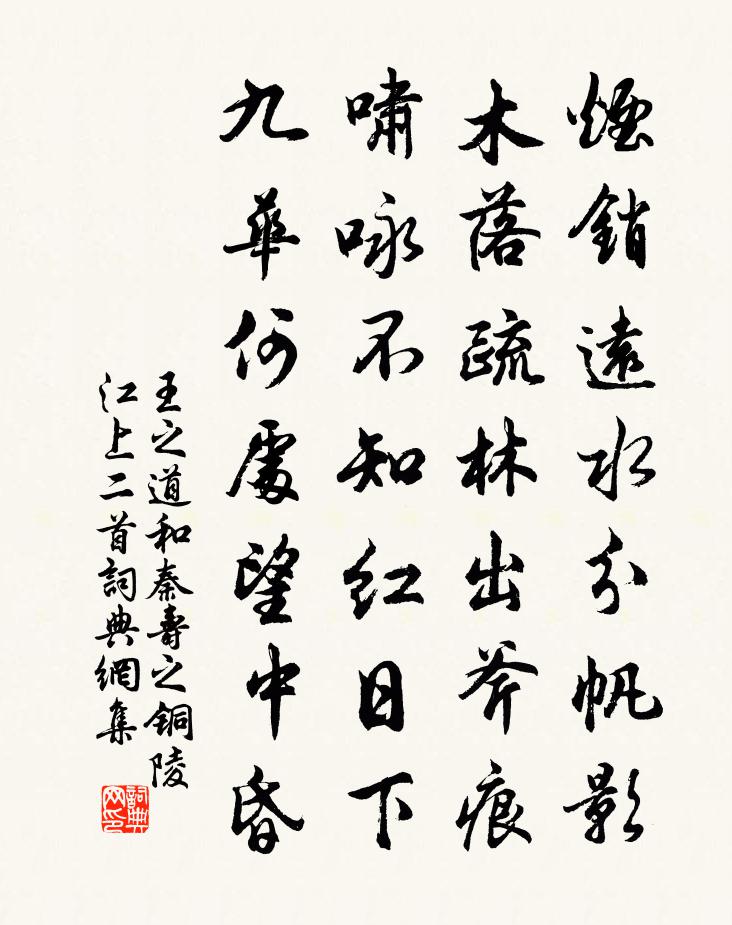 煙銷遠水分帆影
木落疏林出斧痕
嘯咏不知紅日下
九華何處望中昏
王之道和秦壽之銅陵
江上二首詞典網集
詞典网印